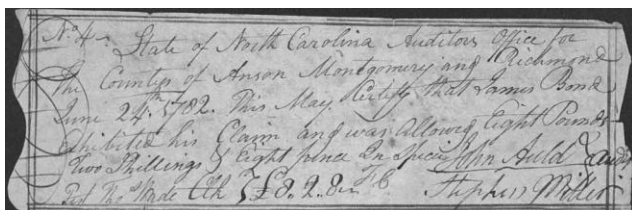 No. 4 State of North Carolina Auditors Office for
The Countys of Anson Montgomery and Richmond
June 24th 1782. This May Certify that James Bond
Exhibited his Claim and was Allowed Eight Pounds
Two Shillings & Eight pence In Specie John Auld
Test Thos Wade Clk £8.2.8 Stephen Miller